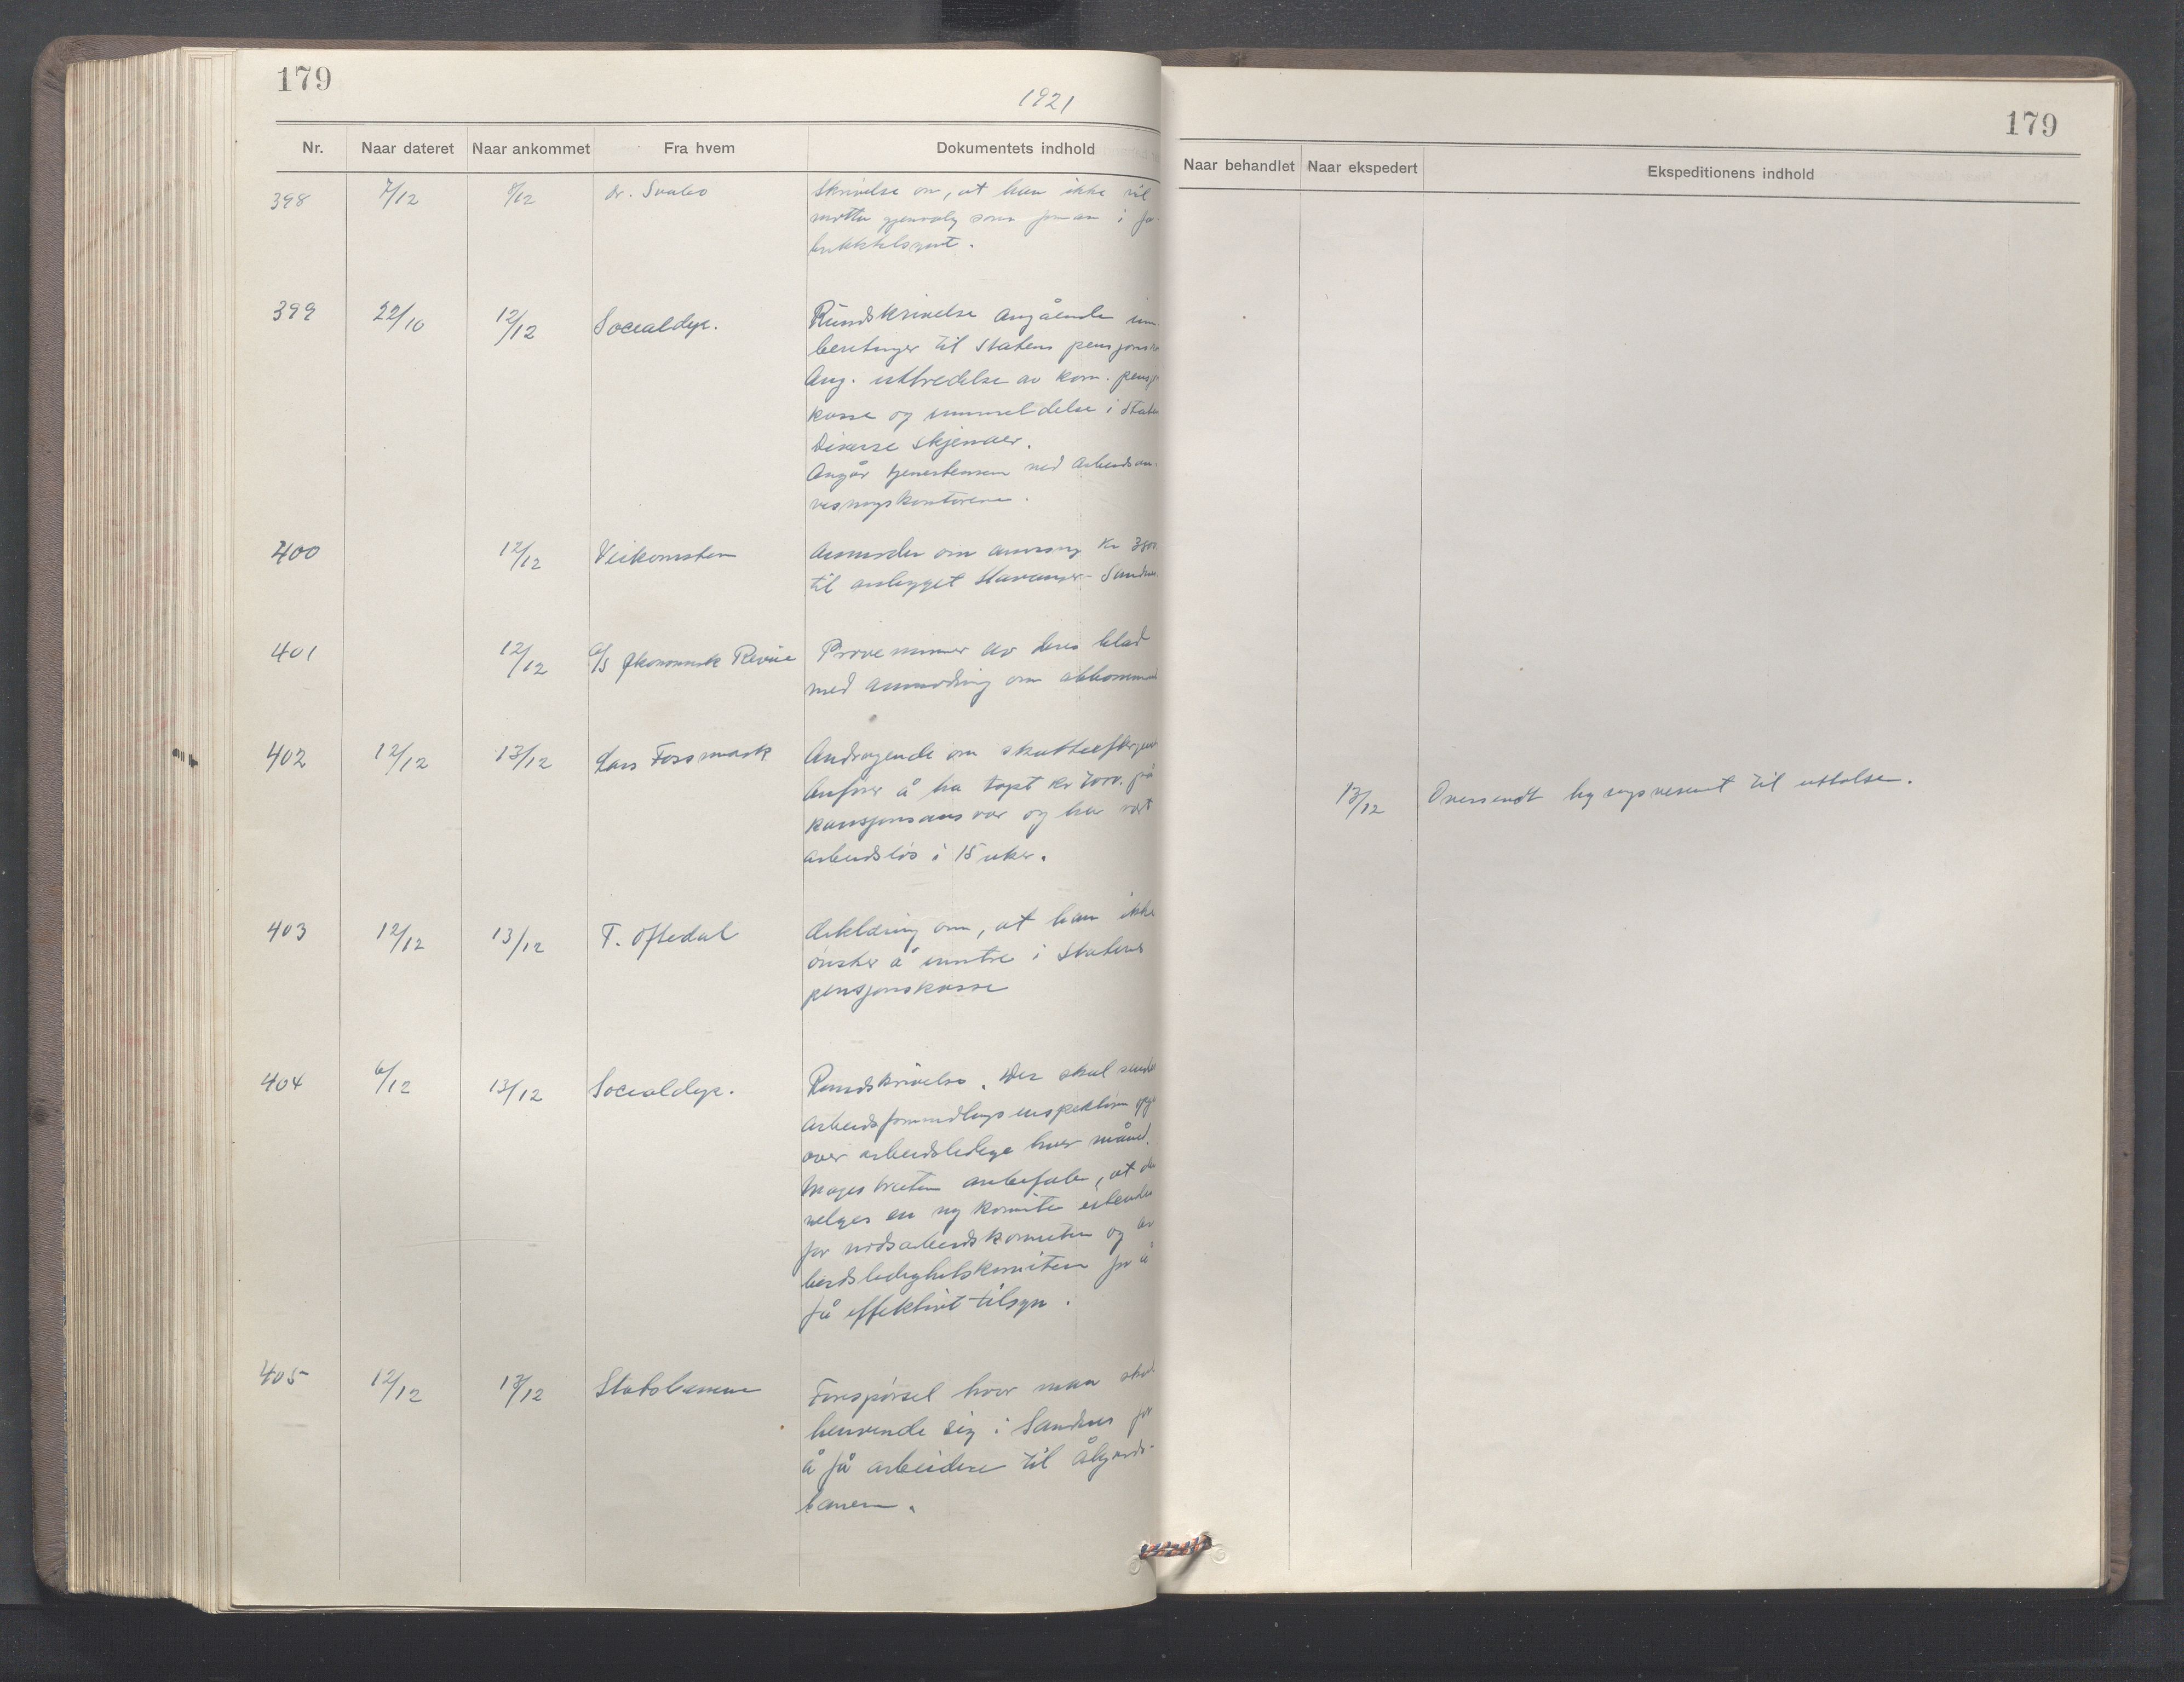 179
1921
Nr. Naar dateret Naar ankommet Fra hvem Dokumentets indhold
398 7/12 8/12 dr. Svabo Skrivelse om, at han ikke vil
motta gjenvalg som forman i fa-
brikktilsynet.
399 22/10 12/12 Socialdep. Rundskrivelse angående inn-
beretninger til Statens pensjons
Ang. uttredelse av kom. pensj
kasse og innmeldelse i Staten
Diverse skjemaer.
Angår tjenestemenn ved arbeidsan-
visningskontorene.
400 12/12 Veikomiteen Anmoder om anvisning kr
til anlegget Stavanger-Sandnes
401 12/12 A/S Økonomisk Revue Prøvenummer av deres blad
med anmodning om abbonnement
402 12/12 13/12 Lars Fossmark Andragende om skatteeftergivelse
Anfører å ha tapt kr 7000. på
kausjonsansvar og har vært
arbeidsløs i 15 uker.
403 12/12 13/12 T. Oftedal Erklæring om, at han ikke
ønsker å inntre i Statens
pensjonskasse
404 6/12 13/12 Socialdep. Rundskrivelse. Der skal sendes
arbeidsformidlingsinspektøren opg
over arbeidsledige hver måned.
Magistraten anbefaler, at der
velges en ny komite istenden
for nødsarbeidskomiteen og ar
beidsledighetskomiteen for å
få effektivt tilsyn.
405 12/12 13/12 Statsbanene Forespørsel hvor man skal
henvende sig i Sandnes for
å få arbeidere til Ålgårds-
banen.
179
Naar behandlet Naar ekspedert Ekspeditionens indhold
13/12 Oversendt ligningsvesenet til uttalelse.